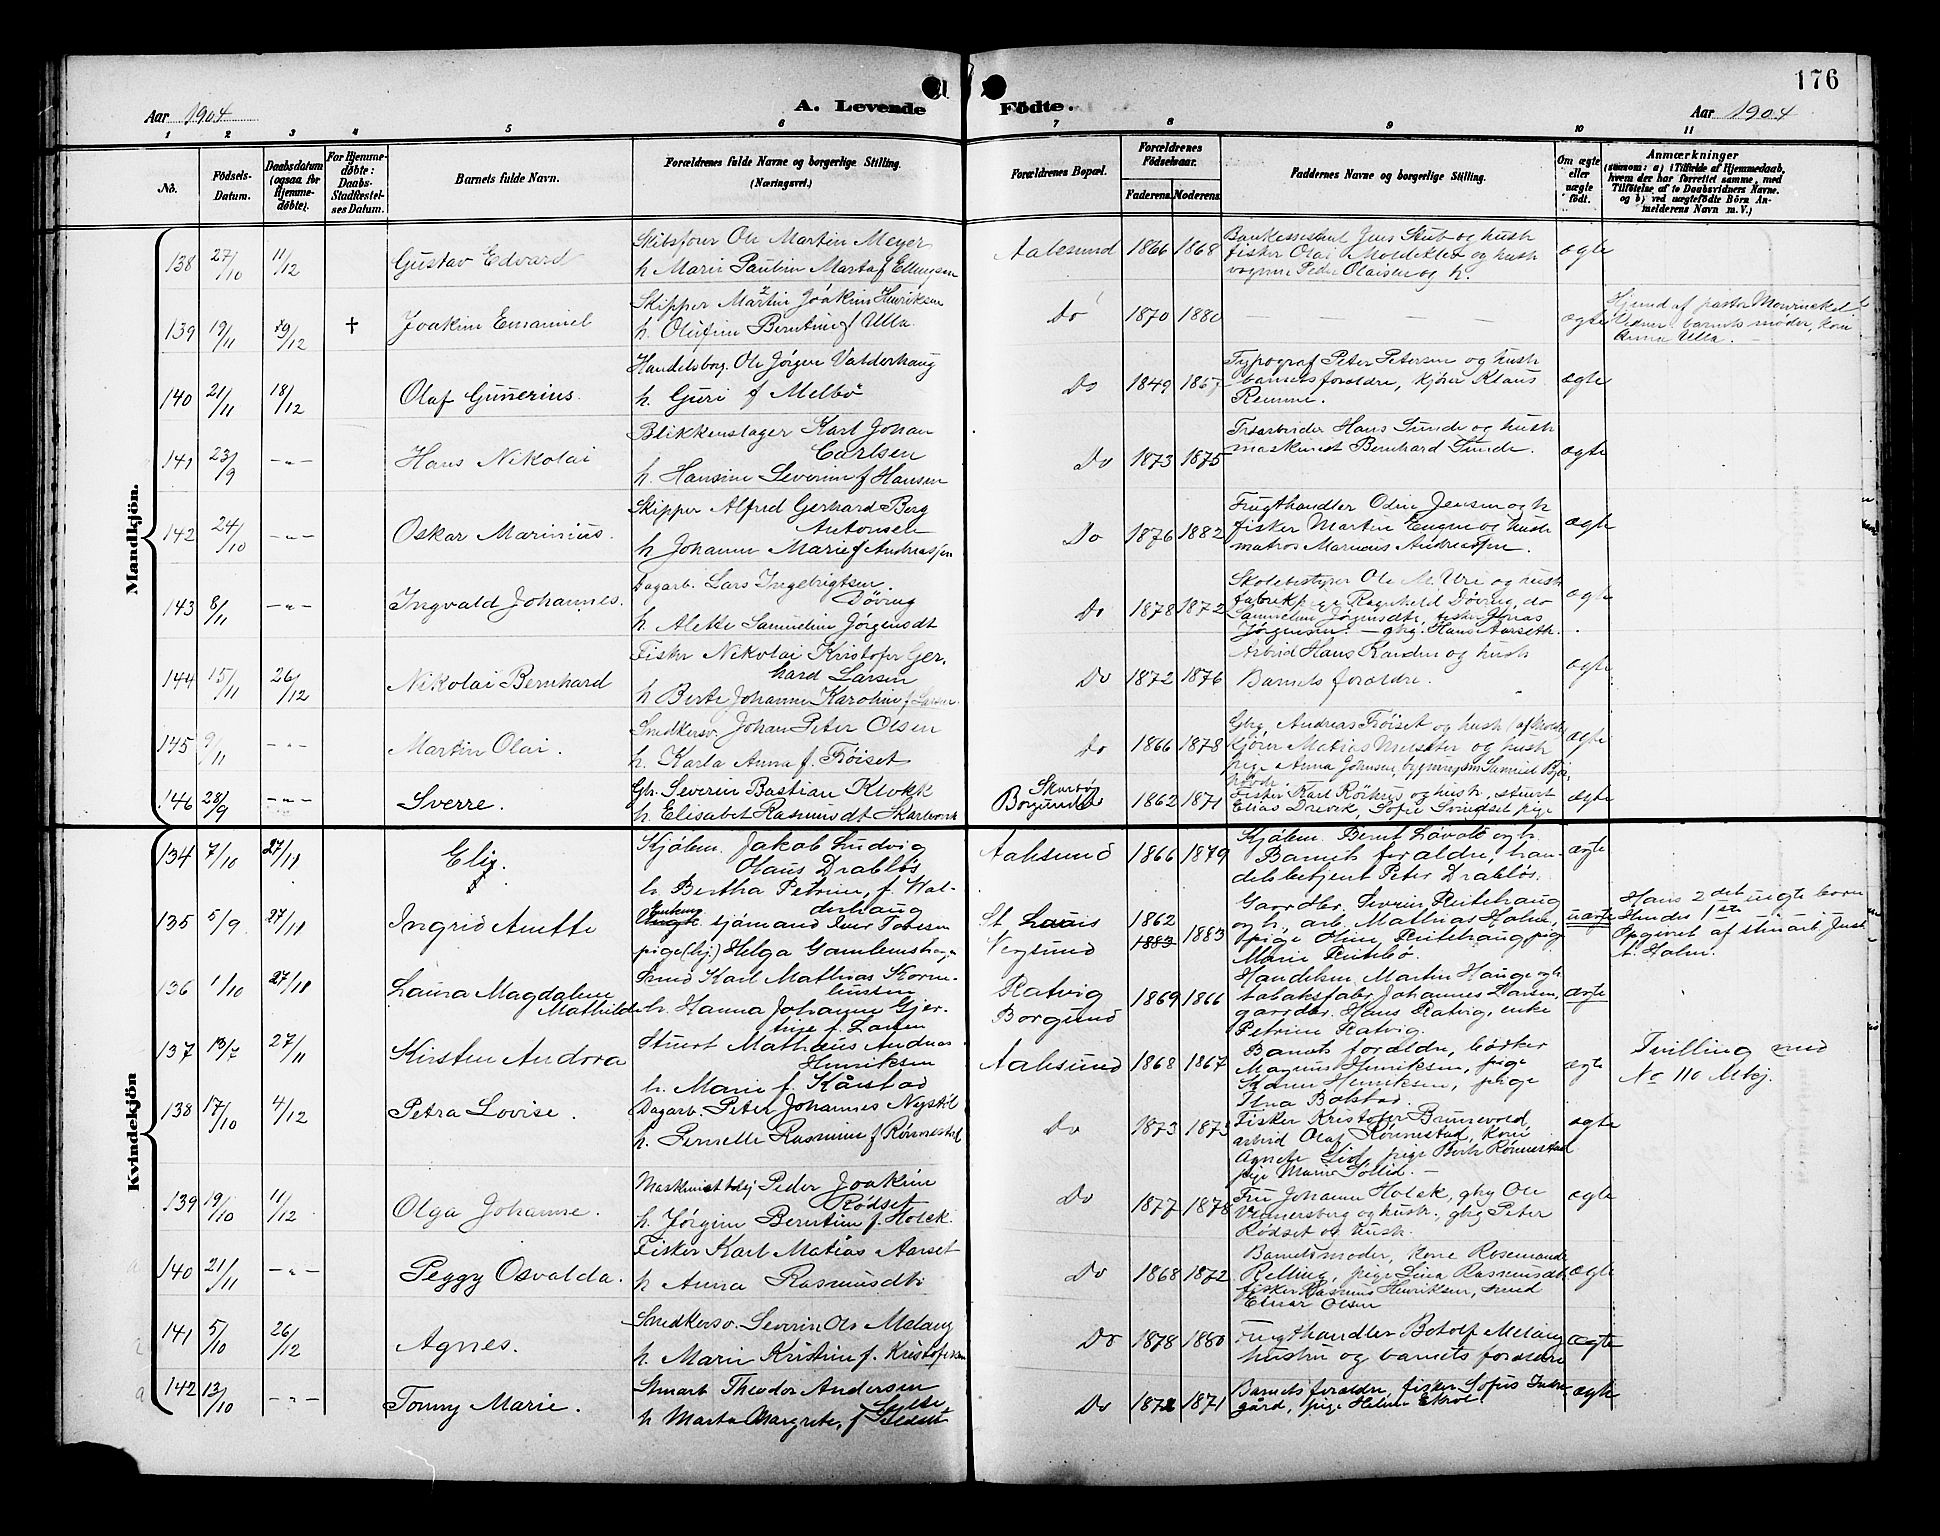 176
Aar 1904
A. Levende Födte.
Aar 1904
1 2 3 4 5 6 7 8 9 10 11
No.
Födsels-Datum.
Daabsdatum (ogsaa for Hjemmedöbte).
For Hjemmedöbte: Daabs-Stadfestelses Datum.
Barnets fulde Navn.
Forældrenes fulde Navne og borgerlige Stilling.
(Næringsvei.)
Forældrenes Bopæl.
Forældrenes Födselsaar.
Faderens. Moderens.
Faddernes Navne og borgerlige Stilling.
Om ægte eller uægte födt.
Anmærkninger
(saasom: a) i Tilfælde af Hjemmedaab, hvem der har forrettet samme, med Tilföielse af to Daabsvidners Navne, og b) ved uægtefödte Börn Anmelderens Navn m. V.)
Mandkjön.
138 27/10 11/12 Gustav Edvard
Ole Martin Meyer
h. Marie Pauline Marta f Ellingsen
Aalesund 1866 1868
Jens Stub og hustr
fisker Olai Moldeklet og hustr
Peder Olaisen og h. ægte
139 19/11 29/12 † Joakim Emanuel
Skipper Martin Joakim Henriksen
h. Olufine Berntine f Ulla
Do 1870 1880 — — — — — ægte
Hjemd af pastor
barnets moder, kone
Anna Ulla. —
140 21/11 18/12 Olaf Gunerius.
Handelsborg. Ole Jörgen Valderhaug
h. Guri f Melbö
Do 1849 1867
Typograf Peter Petersen og hustr
barnets forældre, kjörer Klaus
Remme. ægte
141 23/9 -"- Hans Nikolai
Blikkenslager Karl Johan
Carlsen
h. Hansine Severine f Hansen
Do 1873 1875
Hans Sunde og hustr
maskinist Bernhard Sunde. ægte
142 24/10 -"- Oskar Marinius.
Skipper Alfred Gerhard Berg
Antonsen
h Johanne Marie f Andreassen
Do 1876 1882
Frugthandler Odin Jensen og h
fisker Martin Eugen og hustr
matros Marinius Andreassen. ægte
143 8/11 -"- Ingvald Johannes.
Dagarb. Lars Ingebrigtsen
Döving
h. Alette Samueline Jörgensdt
Do 1878 1872
Skolebestyrer Ole M. Uri og hustr
fabrikp. Ragnhild Döving, do
Samueline Jörgensdt, fisker Jonas
Jörgensen. — gbrg. Hans Aarseth. ægte
144 15/11 26/12 Nikolai Bernhard
Fisker Nikolai Kristofer Ger-
hard Larsen
h Berte Johanne Karoline f Larsen.
Do 1872 1876
Arbeid Hans Randen og hustr
Barnets forældre. ægte
145 9/11 -"- Martin Olai.
Snedkersv. Johan Peter Olsen
h. Karla Anna f. Fröiset
Do 1866 1878
Gbrg. Andreas Fröiset og hustr
kjörer Matias Melsæter og hustr
pige Anna Johnsen, ægte
146 28/9 -"- Sverre.
Gbr. Severin Bastian Klokk
h. Elisabet Rasmusdt Skarbövik
Skarböv
Borgund 1862 1871
Fisker Karl og hustr, stuert
Elias Drevik, Sofie pige ægte
Kvindekjön
134 7/10 27/11 Eli.
Kjölem. Jakob Ludvig
Olaus Drablös
h. Bertha Petrine f. Wal-
derhaug
Aalesund 1866 1879
Kjölem. Bernt og h.
Barnets forældre, han-
delsbetjent Peter Drablös. ægte
135 5/9 27/11 Ingrid Anette
sjömand Iver Tobesen
pige (hj.) Helga
St. Louis
Vegsund 1862 1883 1883
Gaardbr. Severin Reitehaug
og h, arb. Mathias Holm,
pige Hine Reitehaug pig
Marie uægte
Hans 2det uægte barn
Hendes 1ste
Opgivet af stuart Just
A. Holm.
136 1/10 27/11 Laura Magdalene
Mathilde
Smed Karl Mathias Korne-
liussen
h. Hanna Johanne Gjer-
tine f. Larsen
Ratvig
Borgund 1869 1866
Handelsm. Martin Hauge og h.
tabaksfabr. Johannes Larsen,
gaardbr. Hans Ratvig, enke
Petrine Ratvig. ægte
137 13/7 27/11 Kirsten Andora
Stuert Mathæus Andreas
Henriksen
h. Marie f. Kårstad
Aalesund 1868 1867
Barnets forældre, bödker
Magnus Henriksen, pige
Karen Henriksen, pige
Bolstad. ægte
Tvilling med
No 110 Mkj.
138 17/10 4/12 Petra Lovise.
Dagarb. Peter Johannes Nystöl
h. Pernelle Rasmine f Rönnestad
Do 1873 1875
Fisker Kristofer Brunevold,
arbeid Olaf Rönnestad, kone
Agnete Lid, pige Berte Rönnestad
pige Marie Söllid. — ægte
139 19/10 11/12 Olga Johanne.
Maskinist Peder Joakim
Rödset
h. Jörgine Berntine f. Holck.
Do 1877 1878
Fru Johanne Holck, gbrg Ole
Vennersberg og hustr., gbrg Peter
Rödset og hustr. ægte
140 21/11 -"- Peggy Osvalda.
Fisker Karl Matias Aarset
h Anna Rasmusdt
Do 1868 1872
Barnets moder, kone Rosemunde
Relling, pige Lina Rasmusdt,
fisker Rasmus Henriksen, smed
Einar Olsen ægte
141 5/10 26/12 Agnes.
Snedkersv. Severin Ole Melang
h. Marie Kristine f. Kristofersen
Do 1878 1880
Frugthandler Botolf Melang
hustru og barnets forældre ægte
142 13/10 -"- Tommy Marie.
Theodor Andersen
h Marta Margrete, f
Do 1872 1871
Barnets forældre, fisker Sofus
gård, pige Helene Ekroll ægte